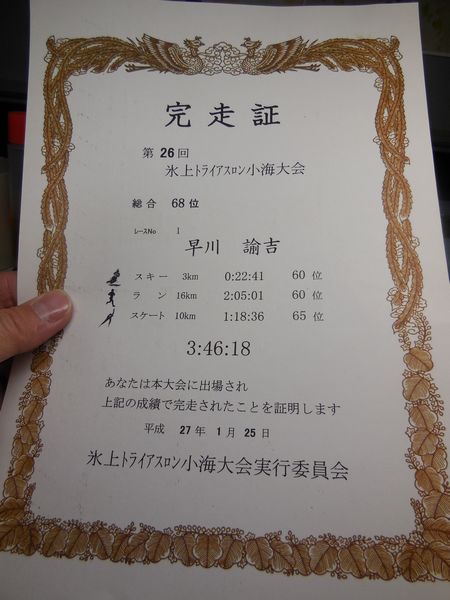 完走証
第 26 回
氷上トライアスロン小海大会
総合 68 位
レースNo 1
早川 諭吉
スキー 3km 0:22:41 60 位
ラン 16km 2:05:01 60 位
スケート 10km 1:18:36 65 位
3:46:18
あなたは本大会に出場され
上記の成績で完走されたことを証明します
平成 27 年 1 月 25 日
氷上トライアスロン小海大会実行委員会